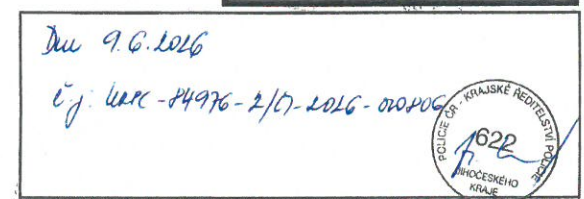 Dne 9.6.2026
č.j: KRPC-84976-2/ČJ-2026-020806
POLICIE ČR - KRAJSKÉ ŘEDITELSTVÍ POLICIE
622
JIHOČESKÉHO
KRAJE